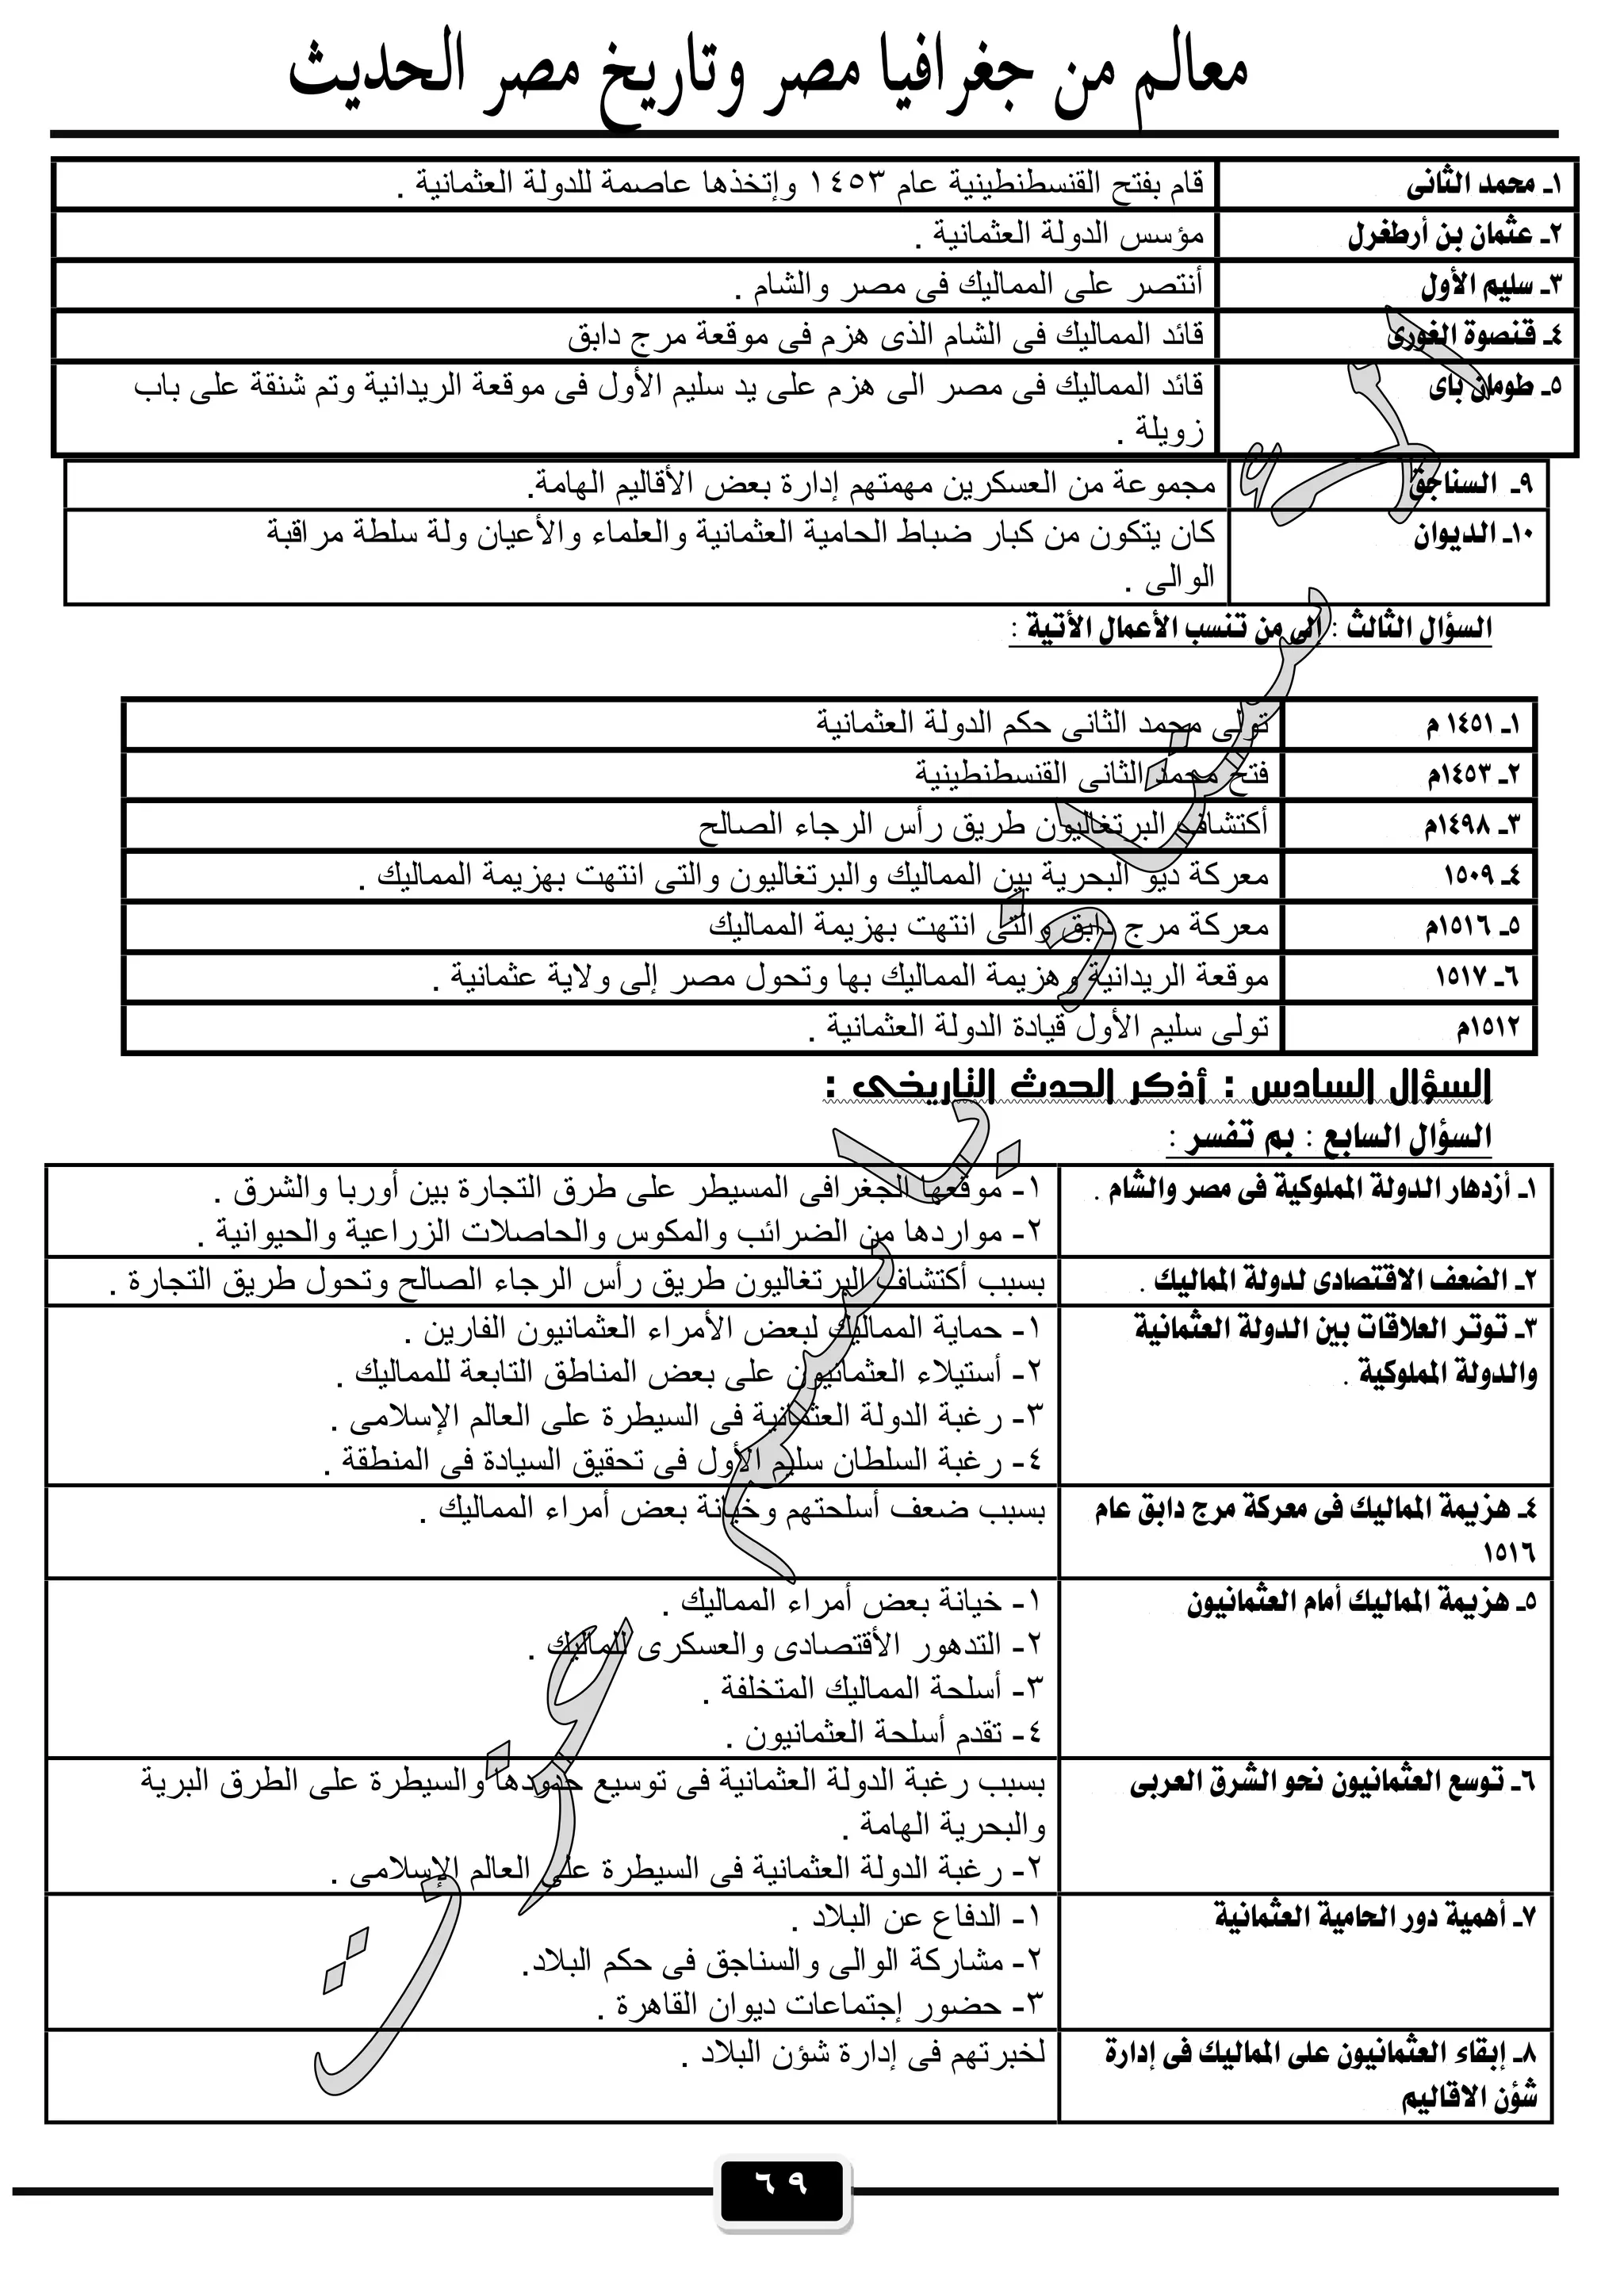 معالم من جغرافيا مصر وتاريخ مصر الحديث
١ـ محمد الثانى
قام بفتح القنسطنطينية عام ١٤٥٣ وإتخذها عاصمة للدولة العثمانية .
٢ـ عثمان بن أرطغرل
مؤسس الدولة العثمانية .
٣ـ سليم الأول
أنتصر على المماليك فى مصر والشام .
٤ـ قنصوة الغورى
قائد المماليك فى الشام الذى هزم فى موقعة مرج دابق
٥ـ طومان باى
قائد المماليك فى مصر الى هزم على يد سليم الأول فى موقعة الريدانية وتم شنقة على باب
زويلة .
٩ـ السناجق
مجموعة من العسكرين مهمتهم إدارة بعض الأقاليم الهامة.
١٠ـ الديوان
كان يتكون من كبار ضباط الحامية العثمانية والعلماء والأعيان ولة سلطة مراقبة
الوالى .
السؤال الثالث : إلى من تنسب الأعمال الأتية :
١ـ ١٤٥١ م
تولى محمد الثانى حكم الدولة العثمانية
٢ـ ١٤٥٣م
فتح محمد الثانى القنسطنطينية
٣ـ ١٤٩٨م
أكتشاف البرتغاليون طريق رأس الرجاء الصالح
٤ـ ١٥٠٩
معركة ديو البحرية بين المماليك والبرتغاليون والتى انتهت بهزيمة المماليك .
٥ـ ١٥١٦م
معركة مرج دابق والتى انتهت بهزيمة المماليك
٦ـ ١٥١٧
موقعة الريدانية وهزيمة المماليك بها وتحول مصر إلى ولاية عثمانية .
١٥١٢م
تولى سليم الأول قيادة الدولة العثمانية .
السؤال السادس : أذكر الحدث التاريخى :
السؤال السابع : بم تفسر :
١ـ أزدهار الدولة المملوكية فى مصر والشام .
١- موقعها الجغرافى المسيطر على طرق التجارة بين أوربا والشرق .
٢- مواردها من الضرائب والمكوس والحاصلات الزراعية والحيوانية .
٢ـ الضعف الاقتصادى لدولة المماليك .
بسبب أكتشاف البرتغاليون طريق رأس الرجاء الصالح وتحول طريق التجارة .
٣ـ توتر العلاقات بين الدولة العثمانية
والدولة المملوكية .
١- حماية المماليك لبعض الأمراء العثمانيون الفارين .
٢- أستيلاء العثمانيون على بعض المناطق التابعة للمماليك .
٣- رغبة الدولة العثمانية فى السيطرة على العالم الإسلامى .
٤- رغبة السلطان سليم الأول فى تحقيق السيادة فى المنطقة .
٤ـ هزيمة المماليك فى معركة مرج دابق عام
١٥١٦
بسبب ضعف أسلحتهم وخيانة بعض أمراء المماليك .
٥ـ هزيمة المماليك أمام العثمانيون
١- خيانة بعض أمراء المماليك .
٢- التدهور الأقتصادى والعسكرى للماليك .
٣- أسلحة المماليك المتخلفة .
٤- تقدم أسلحة العثمانيون .
٦ـ توسع العثمانيون نحو الشرق العربى
بسبب رغبة الدولة العثمانية فى توسيع حدودها والسيطرة على الطرق البرية
والبحرية الهامة .
٢- رغبة الدولة العثمانية فى السيطرة على العالم الإسلامى .
٧ـ أهمية دور الحامية العثمانية
١- الدفاع عن البلاد .
٢- مشاركة الوالى والسناجق فى حكم البلاد.
٣- حضور إجتماعات ديوان القاهرة .
٨ـ إبقاء العثمانيون على المماليك فى إدارة
شؤن الاقاليم
لخبرتهم فى إدارة شؤن البلاد .
٦٩